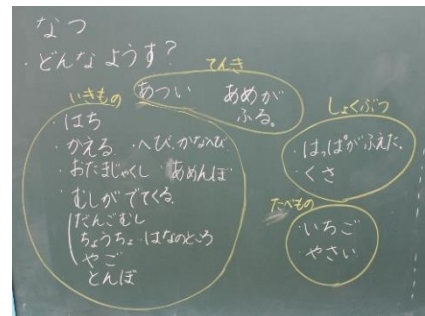 なつ
・どんなようす?
てんき
あつい
あめが
ふる。
いきもの
・はち
・かえる ・へび、かなへび
・おたまじゃくし ・あめんぼ
・むしがでてくる
だんごむし
ちょうちょーはなのところ
やご
とんぼ
しょくぶつ
・はっぱがふえた。
・くさ
たべもの
・いちご
・やさい